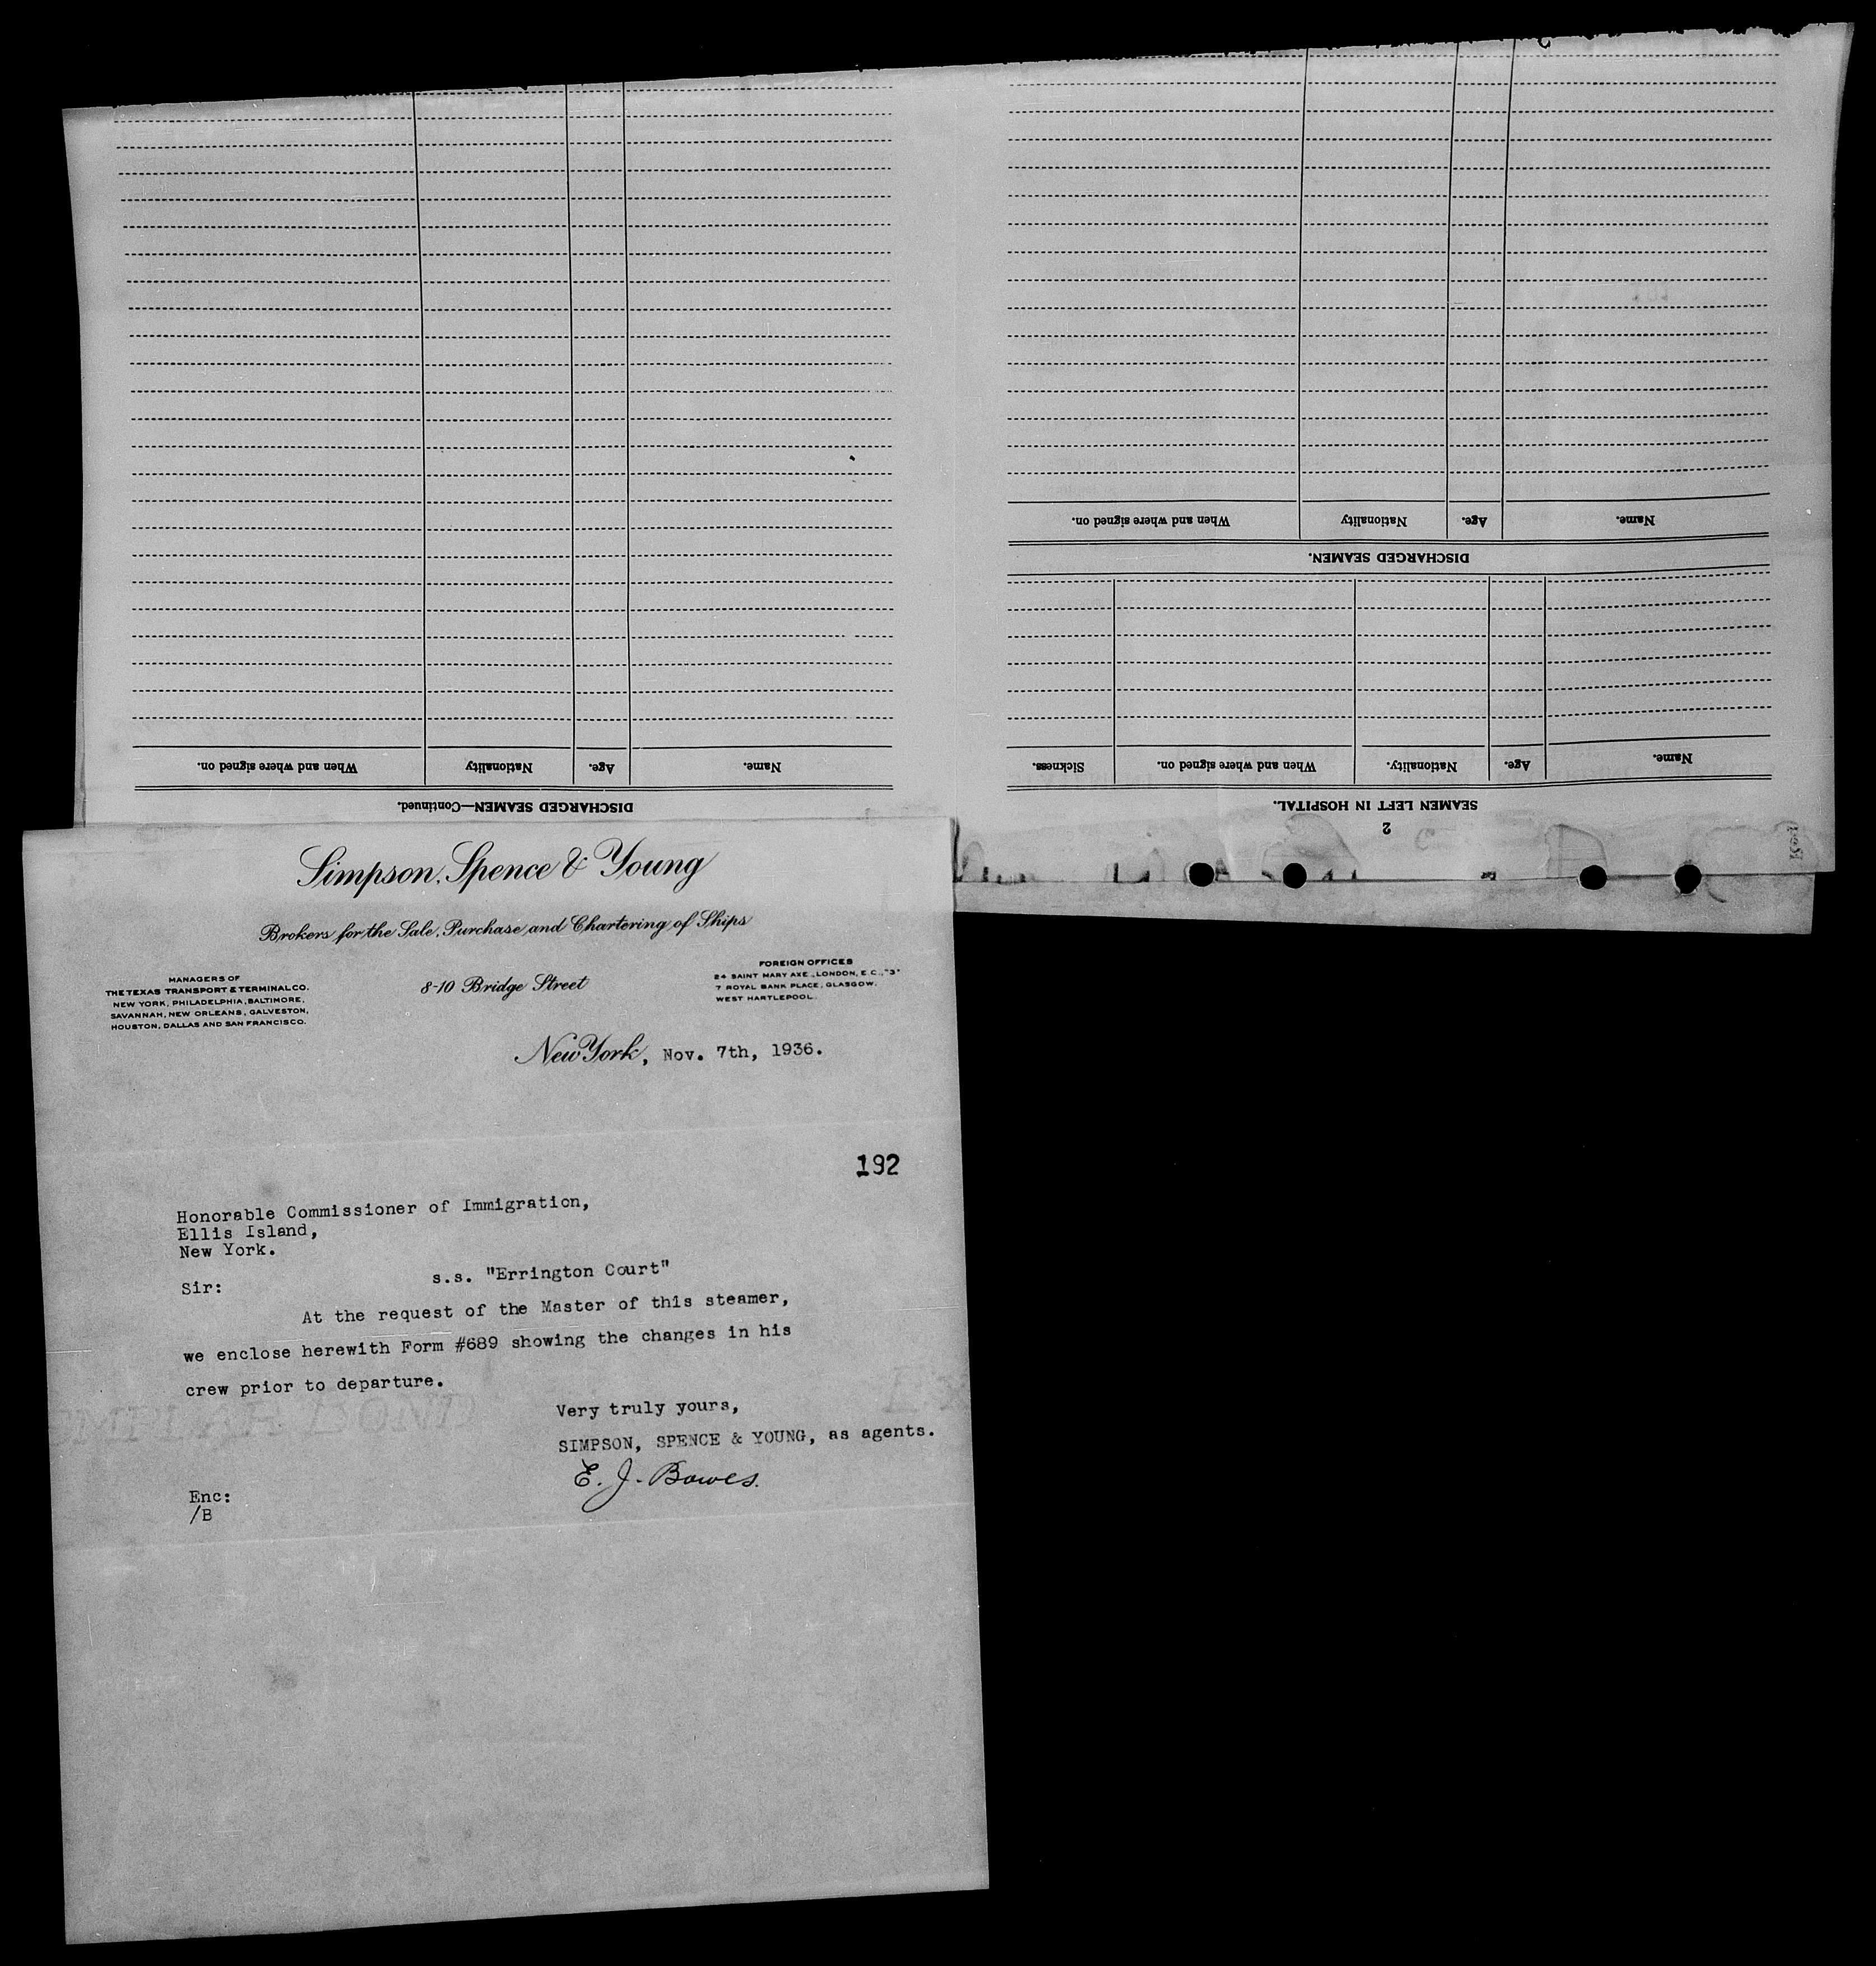 DISCHARGED SEAMEN—Continued.
Name.
Age.
Nationality
When and where signed on.
2
SEAMEN LEFT IN HOSPITAL.
Name.
Age.
Nationality.
When and where signed on.
Sickness.
DISCHARGED SEAMEN.
Name.
Age.
Nationality
When and where signed on.
Simpson, Spence & Young
Brokers for the Sale, Purchase and Chartering of Ships
MANAGERS OF
THE TEXAS TRANSPORT & TERMINAL CO.
NEW YORK, PHILADELPHIA, BALTIMORE,
SAVANNAH, NEW ORLEANS, GALVESTON,
HOUSTON, DALLAS AND SAN FRANCISCO.
8-10 Bridge Street
FOREIGN OFFICES
24 SAINT MARY AXE., LONDON, E.C., "3"
7 ROYAL BANK PLACE, GLASGOW.
WEST HARTLEPOOL.
New York, Nov. 7th, 1936.
192
Honorable Commissioner of Immigration,
Ellis Island,
New York.
s.s. "Errington Court"
Sir:
At the request of the Master of this steamer,
we enclose herewith Form #689 showing the changes in his
crew prior to departure.
Very truly yours,
SIMPSON, SPENCE & YOUNG, as agents.
E. J. Bowes.
Enc:
/B